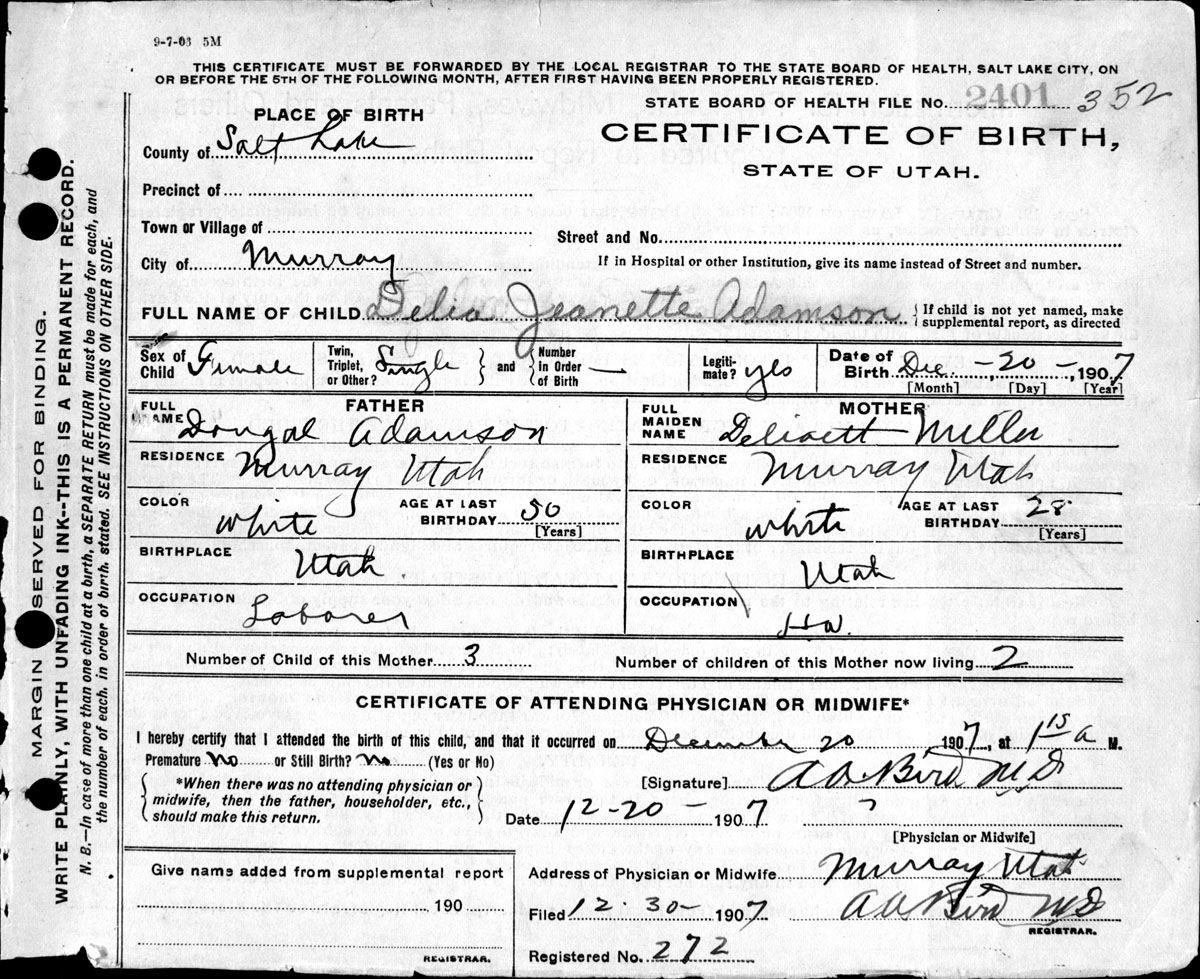 9-7-03 5M
THIS CERTIFICATE MUST BE FORWARDED BY THE LOCAL REGISTRAR TO THE STATE BOARD OF HEALTH, SALT LAKE CITY, ON
OR BEFORE THE 5TH OF THE FOLLOWING MONTH, AFTER FIRST HAVING BEEN PROPERLY REGISTERED.
STATE BOARD OF HEALTH FILE NO. 2401 352
PLACE OF BIRTH
CERTIFICATE OF BIRTH,
STATE OF UTAH.
County of Salt Lake
Precinct of
Town or Village of
Street and No.
City of Murray
If in Hospital or other Institution, give its name instead of Street and number.
FULL NAME OF CHILD Delia Jeanette Adamson { If child is not yet named, make
supplemental report, as directed
Sex of Child Female
Twin, Triplet, or Other? Single } and { Number in Order of Birth —
Legitimate? yes
Date of Birth Dec - 20 -, 1907
[Month] [Day] [Year]
FATHER
FULL NAME Dougal Adamson
RESIDENCE Murray Utah
COLOR White
AGE AT LAST BIRTHDAY 30 [Years]
BIRTHPLACE Utah
OCCUPATION Laborer
MOTHER
FULL MAIDEN NAME Miller
RESIDENCE Murray Utah
COLOR White
AGE AT LAST BIRTHDAY 28 [Years]
BIRTHPLACE Utah
OCCUPATION H.W.
Number of Child of this Mother 3
Number of children of this Mother now living 2
CERTIFICATE OF ATTENDING PHYSICIAN OR MIDWIFE*
I hereby certify that I attended the birth of this child, and that it occurred on December 20 1907, at 1 15 a M.
Premature No or Still Birth? No (Yes or No)
{ *When there was no attending physician or
midwife, then the father, householder, etc.,
should make this return. }
[Signature] Bird MD
Date 12-20- 1907 ?
[Physician or Midwife]
Give name added from supplemental report
190
REGISTRAR.
Address of Physician or Midwife Murray Utah
Filed 12-30- 1907 Bird MD
REGISTRAR.
Registered No. 272
MARGIN RESERVED FOR BINDING.
WRITE PLAINLY, WITH UNFADING INK--THIS IS A PERMANENT RECORD.
N. B.—In case of more than one child at a birth, a SEPARATE RETURN must be made for each, and
the number of each, in order of birth, stated. SEE INSTRUCTIONS ON OTHER SIDE.